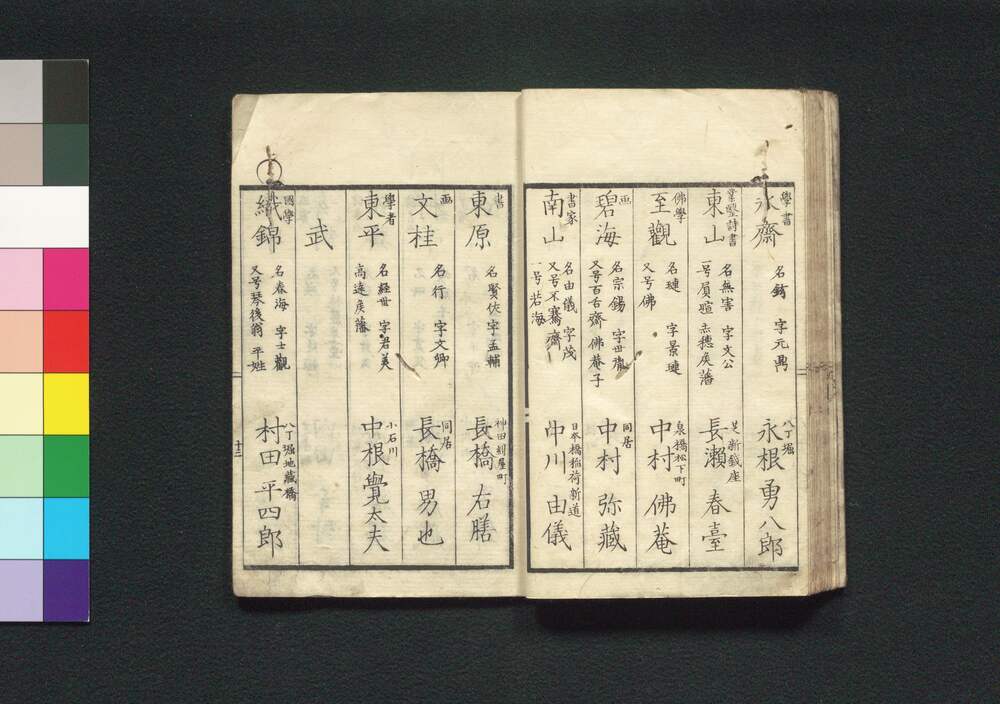 學書
永齋
名鋳 字元禺
八丁堀
永根勇八郎
業醫詩書
東山
名無害 字文公
一号頁暄 赤穂矦藩
芝新銭座
長瀬春臺
佛學
至觀
名璉 字景璉
又号佛
泉橋松下町
中村佛菴
画
碧海
名宗錫 字世
又号百舌齋 佛菴子
同居
中村弥藏
書家
南山
名由儀 字茂
又号不騫齋
一号若海
日本橋稲荷新道
中川由儀
書
東原
名賢佐 字孟輔
神田紺屋町
長橋右膳
画
文桂
名行 字文卿
同居
長橋男也
學者
東平
名經世 字君美
高遠矦藩
小石川
中根覺太夫
武
國學
織錦
名春海 字士觀
又号琴後翁 平姓
八丁堀地藏橋
村田平四郎
十三